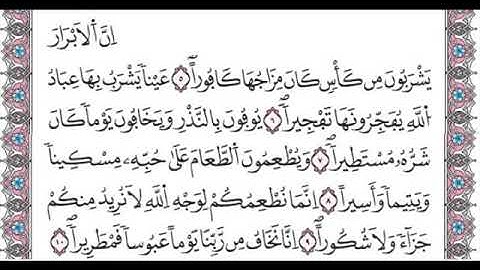 اِنَّ الْاَبْرَارَ
يَشْرَبُونَ مِنْ كَأْسٍ كَانَ مِزَاجُهَا كَافُوراًۚ ﴿٥﴾ عَيْناً يَشْرَبُ بِهَا عِبَادُ
اللّٰهِ يُفَجِّرُونَهَا تَفْج۪يراً ﴿٦﴾ يُوفُونَ بِالنَّذْرِ وَيَخَافُونَ يَوْماً كَانَ
شَرُّهُ مُسْتَط۪يراً ﴿٧﴾ وَيُطْعِمُونَ الطَّعَامَ عَلٰى حُبِّه۪ مِسْك۪يناً
وَيَت۪يماً وَاَس۪يراً ﴿٨﴾ اِنَّمَا نُطْعِمُكُمْ لِوَجْهِ اللّٰهِ لَا نُر۪يدُ مِنْكُمْ
جَزَٓاءً وَلَا شُكُوراً ﴿٩﴾ اِنَّا نَخَافُ مِنْ رَبِّنَا يَوْماً عَبُوساً قَمْطَر۪يراً ﴿١٠﴾